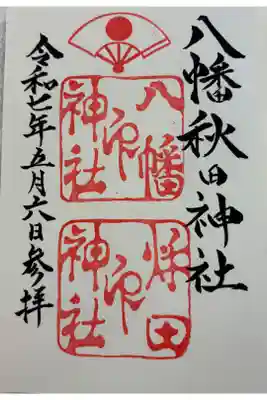 八幡秋田神社
八幡
印
神社
秌田
印
神社
令和七年五月六日参拝